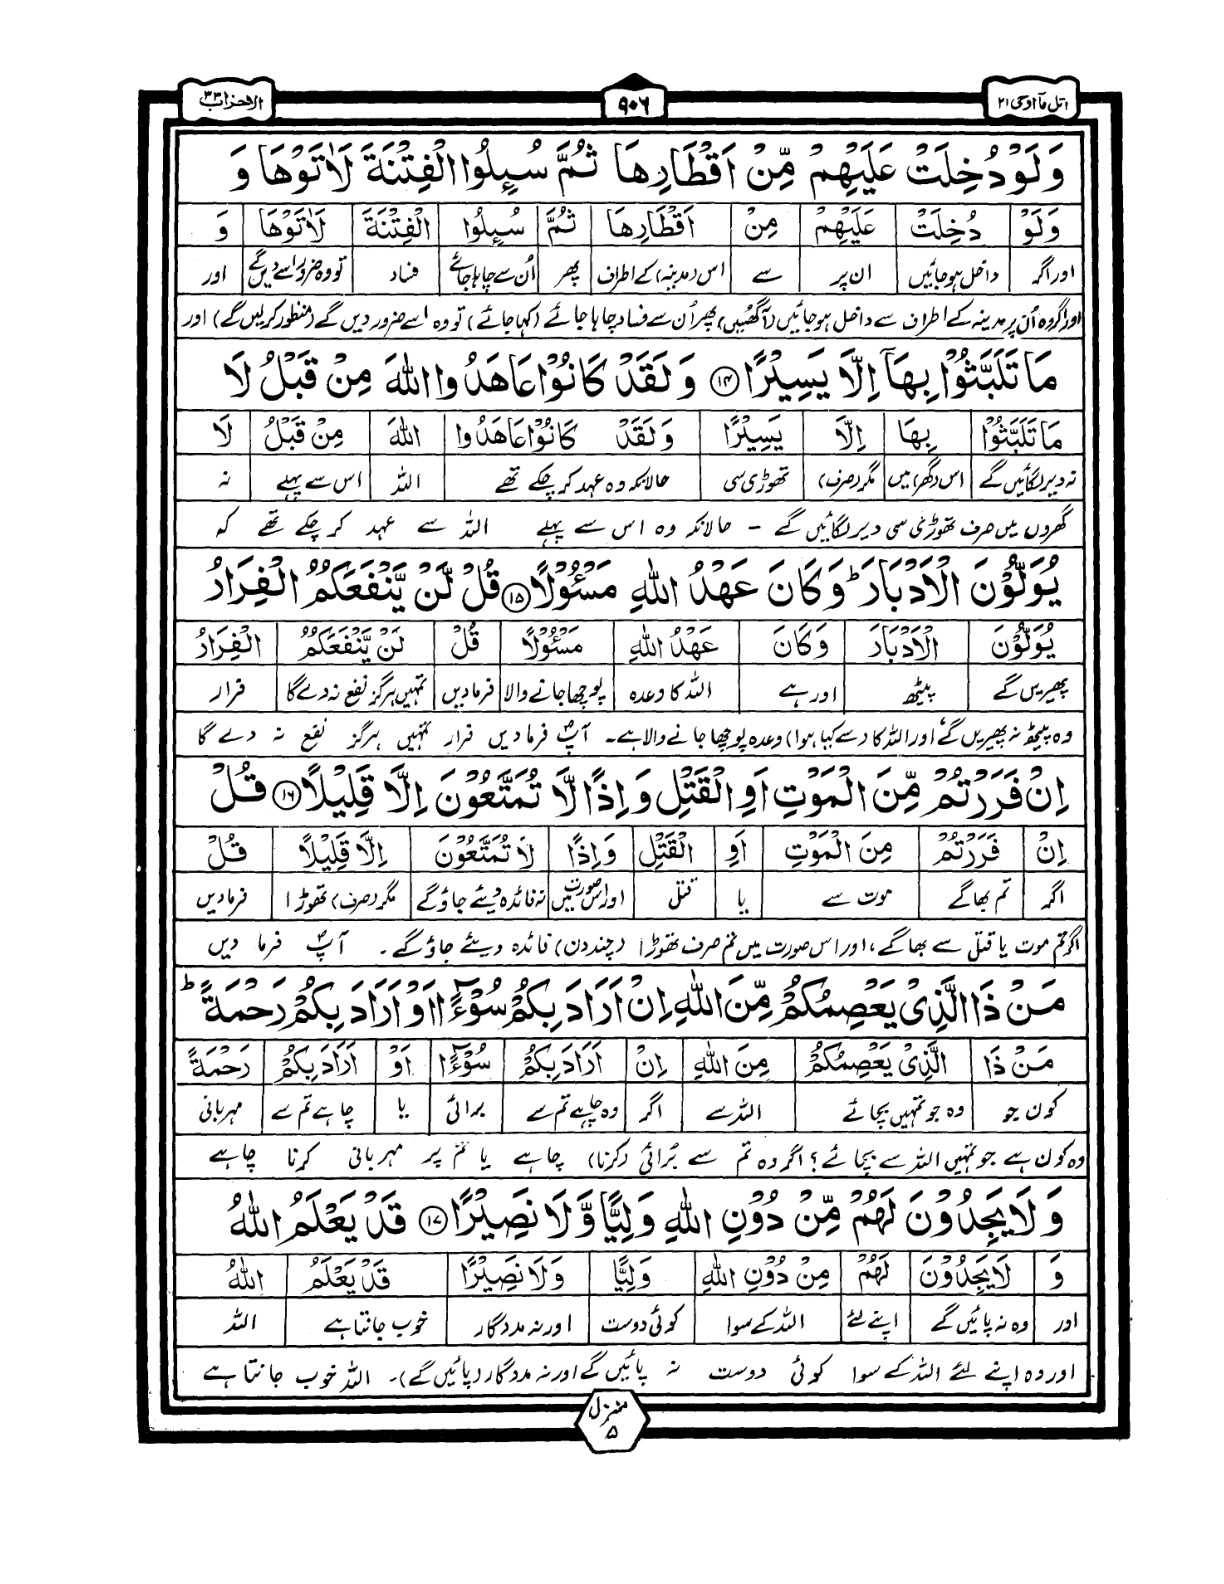 اتل مآ اوحی ۲۱
۹۰۶
الاحزاب ۳۳
وَلَوْ دُخِلَتْ عَلَيْهِمْ مِّنْ اَقْطَارِهَا ثُمَّ سُىِٕلُوا الْفِتْنَةَ لَاٰتَوْهَا وَ
وَلَوْ دُخِلَتْ عَلَيْهِمْ مِنْ اَقْطَارِهَا ثُمَّ سُىِٕلُوا الْفِتْنَةَ لَاٰتَوْهَا وَ
اور اگر داخل ہوجائیں ان پر سے اس (مدینہ) کے اطراف پھر اُن سے چاہا جائے فساد تو وہ ضرور اسے دیں گے اور
اور اگر وہ اُن پر مدینہ کے اطراف سے داخل ہوجائیں (آگھسیں) پھر اُن سے فساد چاہا جائے (کہا جائے) تو وہ اسے ضرور دیں گے (منظور کرلیں گے) اور
مَا تَلَبَّثُوْا بِهَآ اِلَّا يَسِيْرًا ۱۴ وَلَقَدْ كَانُوْا عَاهَدُوا اللّٰهَ مِنْ قَبْلُ لَا
مَا تَلَبَّثُوْا بِهَا اِلَّا يَسِيْرًا وَلَقَدْ كَانُوْا عَاهَدُوا اللّٰهَ مِنْ قَبْلُ لَا
نہ دیر لگائیں گے اس (گھر) میں مگر (صرف) تھوڑی سی حالانکہ وہ عہد کر چکے تھے اللہ اس سے پہلے نہ
گھروں میں صرف تھوڑی سی دیر لگائیں گے - حالانکہ وہ اس سے پہلے اللہ سے عہد کر چکے تھے کہ
يُوَلُّوْنَ الْاَدْبَارَ ؕ وَكَانَ عَهْدُ اللّٰهِ مَسْـُٔوْلًا ۱۵ قُلْ لَّنْ يَّنْفَعَكُمُ الْفِرَارُ
يُوَلُّوْنَ الْاَدْبَارَ وَكَانَ عَهْدُ اللّٰهِ مَسْـُٔوْلًا قُلْ لَنْ يَّنْفَعَكُمُ الْفِرَارُ
پھیریں گے پیٹھ اور ہے اللہ کا وعدہ پوچھا جانے والا فرمادیں تمہیں ہرگز نفع نہ دے گا فرار
وہ پیٹھ نہ پھیریں گے اور اللہ کا (سے کیا ہوا) وعدہ پوچھا جانے والا ہے۔ آپؐ فرمادیں فرار تمہیں ہرگز نفع نہ دے گا
اِنْ فَرَرْتُمْ مِّنَ الْمَوْتِ اَوِ الْقَتْلِ وَاِذًا لَّا تُمَتَّعُوْنَ اِلَّا قَلِيْلًا ۱۶ قُلْ
اِنْ فَرَرْتُمْ مِنَ الْمَوْتِ اَوِ الْقَتْلِ وَاِذًا لَا تُمَتَّعُوْنَ اِلَّا قَلِيْلًا قُلْ
اگر تم بھاگے موت سے یا قتل اور اس صورت میں نہ فائدہ دیئے جاؤ گے مگر (صرف) تھوڑا فرمادیں
اگر تم موت یا قتل سے بھاگے، اور اس صورت میں تم صرف تھوڑا (چند دن) فائدہ دیئے جاؤ گے۔ آپؐ فرما دیں
مَنْ ذَا الَّذِيْ يَعْصِمُكُمْ مِّنَ اللّٰهِ اِنْ اَرَادَ بِكُمْ سُوْٓءًا اَوْ اَرَادَ بِكُمْ رَحْمَةً ؕ
مَنْ ذَا الَّذِيْ يَعْصِمُكُمْ مِنَ اللّٰهِ اِنْ اَرَادَ بِكُمْ سُوْٓءًا اَوْ اَرَادَ بِكُمْ رَحْمَةً
کون جو وہ جو تمہیں بچائے اللہ سے اگر وہ چاہے تم سے برائی یا چاہے تم سے مہربانی
وہ کون ہے جو تمہیں اللہ سے بچائے؟ اگر وہ تم سے بُرائی (کرنا) چاہے یا تم پر مہربانی کرنا چاہے
وَلَا يَجِدُوْنَ لَهُمْ مِّنْ دُوْنِ اللّٰهِ وَلِيًّا وَّلَا نَصِيْرًا ۱۷ قَدْ يَعْلَمُ اللّٰهُ
وَ لَا يَجِدُوْنَ لَهُمْ مِنْ دُوْنِ اللّٰهِ وَلِيًّا وَلَا نَصِيْرًا قَدْ يَعْلَمُ اللّٰهُ
اور وہ نہ پائیں گے اپنے لئے اللہ کے سوا کوئی دوست اور نہ مددگار خوب جانتا ہے اللہ
اور وہ اپنے لئے اللہ کے سوا کوئی دوست نہ پائیں گے اور نہ مددگار (پائیں گے)۔ اللہ خوب جانتا ہے
منزل
۵